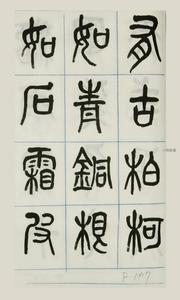 有古柏柯
如青銅根
如石霜皮